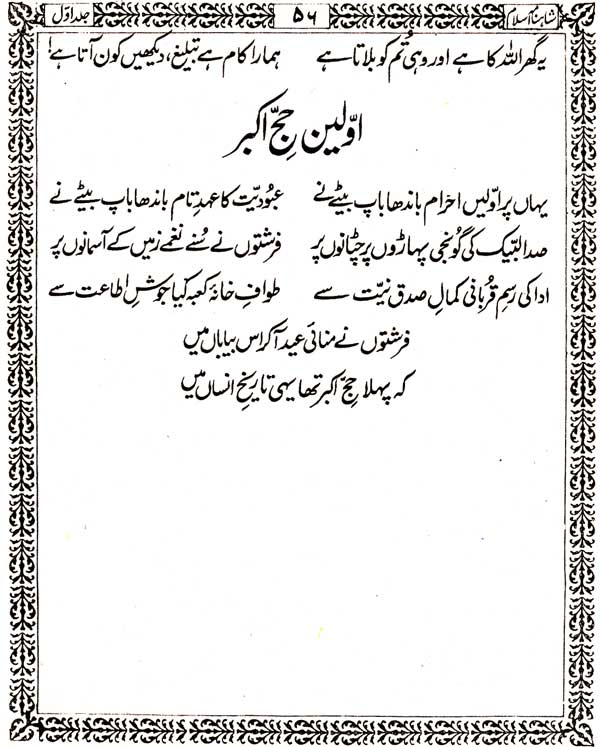 شاہنامہ اسلام ۵۶ جلد اوّل
یہ گھر اللہ کا ہے اور وہی تُم کو بلاتا ہے ہمارا کام ہے تبلیغ، دیکھیں کون آتا ہے!
اوّلین حجِّ اکبر
یہاں پر اوّلیں احرام باندھا باپ بیٹے نے عبودیّت کا عہدِ تام باندھا باپ بیٹے نے
صدا لبّیک کی گونجی پہاڑوں پر چٹانوں پر فرشتوں نے سُنے نغمے زمیں کے آسمانوں پر
ادا کی رسمِ قربانی کمالِ صدق نیّت سے طوافِ خانۂ کعبہ کیا جوشِ اطاعت سے
فرشتوں نے منائی عید آکر اس بیاباں میں
کہ پہلا حجِّ اکبر تھا یہی تاریخِ انساں میں